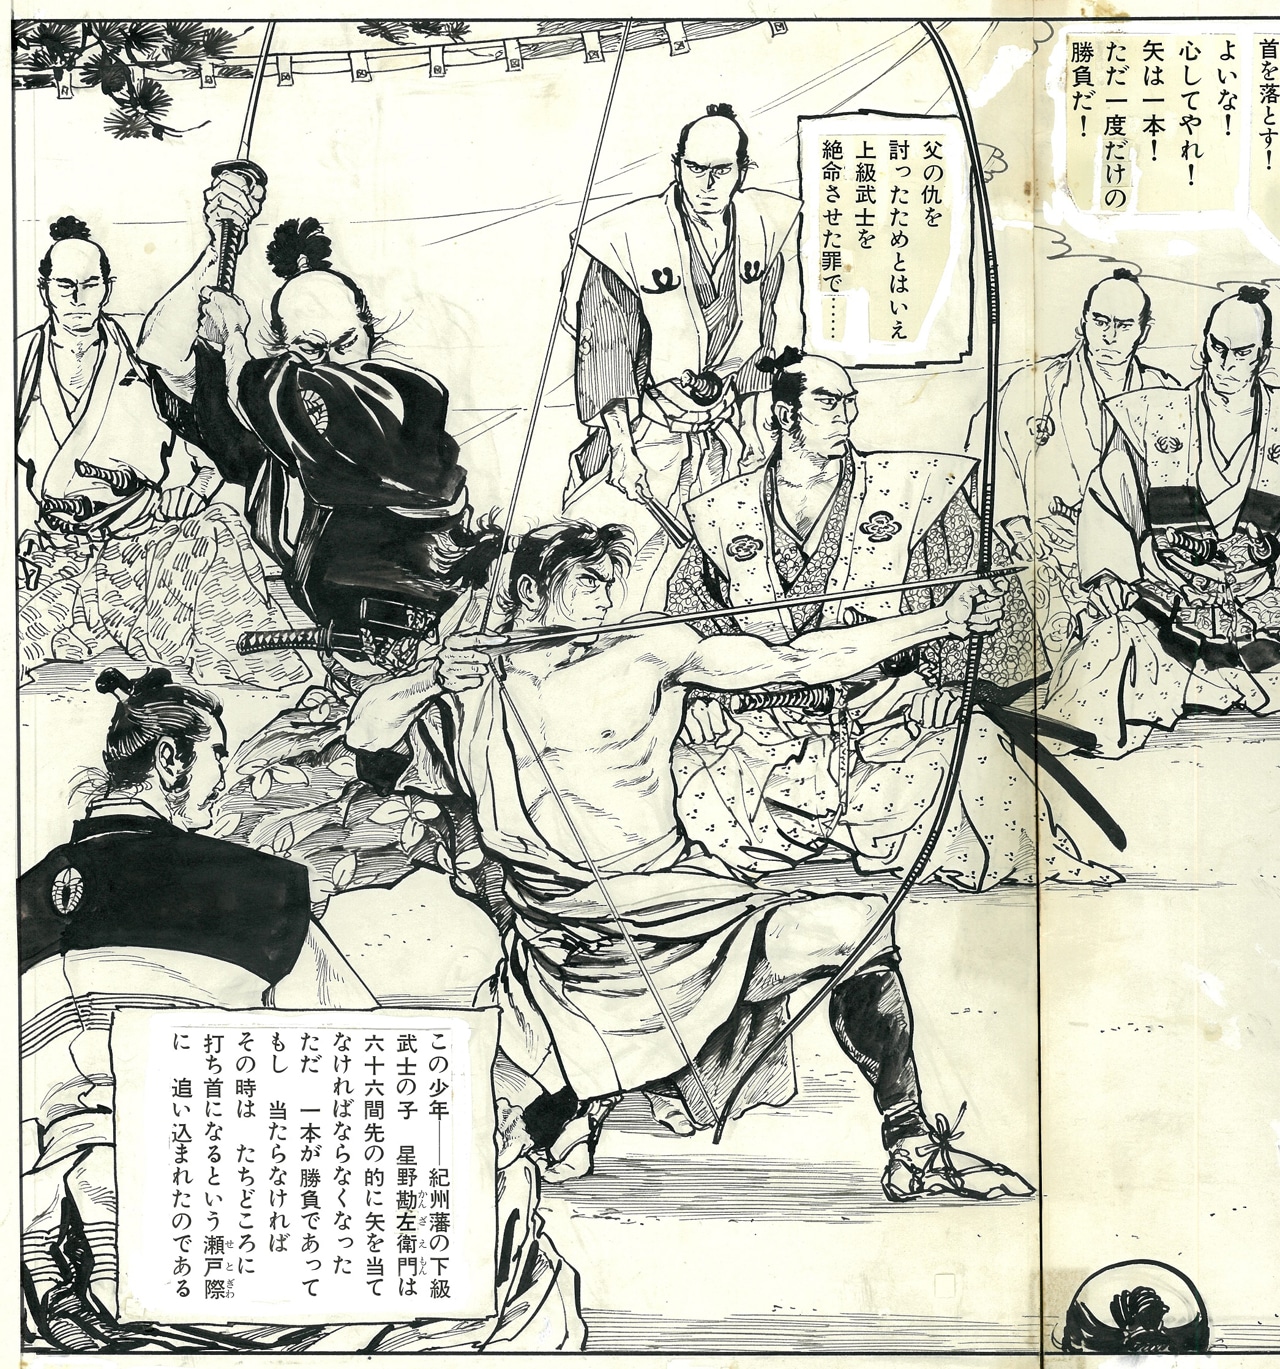 首を落とす！
よいな！
心してやれ！
矢は一本！
ただ一度だけの
勝負だ！
父の仇を
討ったためとはいえ
上級武士を
絶命させた罪で……
この少年──紀州藩の下級
武士の子　星野勘左衛門は
かんざえもん
六十六間先の的に矢を当て
なければならなくなった
ただ　一本が勝負であって
もし　当たらなければ
その時は　たちどころに
打ち首になるという瀬戸際
せとぎわ
に　追い込まれたのである